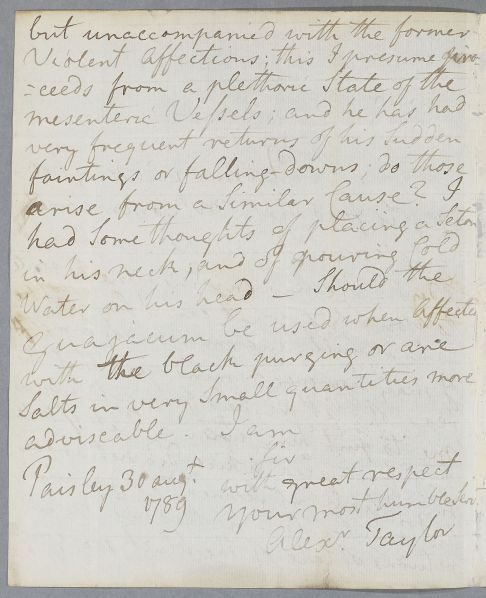 but unaccompanied with the former
Violent affections; this I presume pro
=ceeds from a plethoric State of the
mesenteric Vessels; and he has had
very frequent returns of his Sudden
faintings or falling-downs, do those
arise from a Similar Cause? I
had Some thoughts of placing a Seton
in his neck, and of pouring Cold
Water on his head — Should the
Guajacum be used when affected
with the black purging or are
Salts in very Small quantities more
adviseable. I am
Sir
Paisley 30 augt with great respect
1789 your most humble Servt
Alexr Taylor